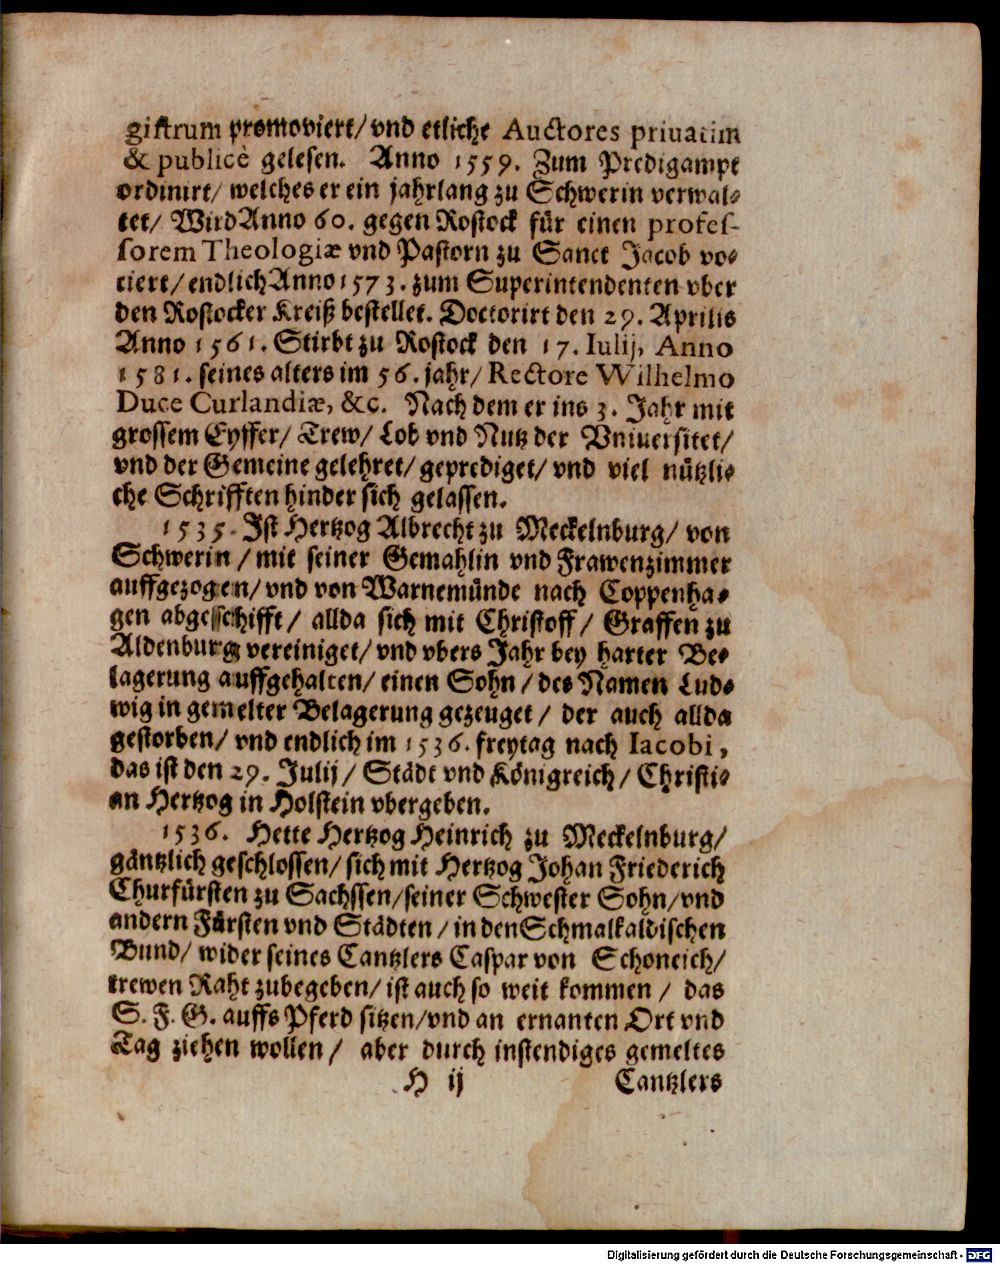 gistrum promoviert/ vnd etliche Auctores priuatim
& publicè gelesen. Anno 1559. Zum Predigampt
ordinirt/ welches er ein jahrlang zu Schwerin verwal-
tet/ Wird Anno 60. gegen Rostock für einen profes-
sorem Theologiæ vnd Pastorn zu Sanct Jacob vo-
ciert/ endlich Anno 1573. zum Superintendenten vber
den Rostocker Kreiß bestellet. Doctorirt den 29. Aprilis
Anno 1561. Stirbt zu Rostock den 17. Iulij, Anno
1581. seines alters im 56. jahr/ Rectore Wilhelmo
Duce Curlandiæ, &c. Nach dem er ins 3. Jahr mit
grossem Eyffer/ Trew/ Lob vnd Nutz der Vniuersitet/
vnd der Gemeine gelehret/ geprediget/ vnd viel nützli-
che Schrifften hinder sich gelassen.
1535. Ist Hertzog Albrecht zu Meckelnburg/ von
Schwerin / mit seiner Gemahlin vnd Frawenzimmer
auffgezogen/ vnd von Warnemünde nach Coppenha-
gen abgeschifft / allda sich mit Christoff / Graffen zu
Aldenburg vereiniget/ vnd vbers Jahr bey harter Be-
lagerung auffgehalten/ einen Sohn / des Namen Lud-
wig in gemelter Belagerung gezeuget / der auch allda
gestorben/ vnd endlich im 1536. freytag nach Iacobi,
das ist den 29. Julij / Städt vnd Königreich / Christi-
an Hertzog in Holstein vbergeben.
1536. Hette Hertzog Heinrich zu Meckelnburg/
gäntzlich geschlossen/ sich mit Hertzog Johan Friederich
Churfürsten zu Sachssen/ seiner Schwester Sohn/ vnd
andern Fürsten vnd Städten / in den Schmalkaldischen
Bund/ wider seines Cantzlers Caspar von Schoneich/
trewen Raht zubegeben/ ist auch so weit kommen / das
S. F. G. auffs Pferd sitzen/ vnd an ernanten Ort vnd
Tag ziehen wollen / aber durch instendiges gemeltes
H ij Cantzlers
Digitalisierung gefördert durch die Deutsche Forschungsgemeinschaft - DFG